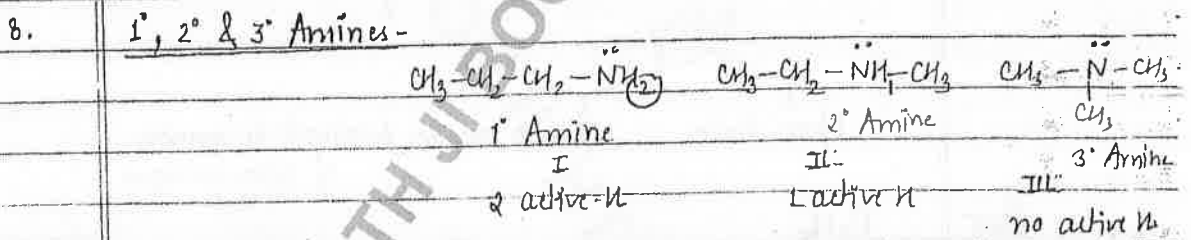 8. 1°, 2° & 3° Amines-
CH₃-CH₂-CH₂-N̈H₂ CH₃-CH₂-N̈H-CH₃ CH₃-N̈-CH₃
CH₃
1° Amine 2° Amine 3° Amine
I II III
2 active-H 1 active H no active H